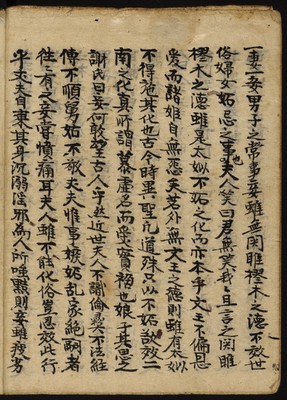 一妻一妾男子之常事妾雖無関雎樛木之德不效世
俗婦女妬忌之事也夫人笑曰君無笑我且言之関雎
樛木之德雖是太姒不妬之化而亦本乎文王不偏恩
愛而諸姬自無怨矣若外無文王之德則雖有太姒
不得施其化也古今時異聖凡道殊又以不妬欲效二
南之化眞所謂慕虛名而受實禍也娘子其思之
謝氏曰妾何敢望古人乎然近世夫人不識倫𢙢不法經
傳不順舅姑不敬丈夫惟事嫉妬乱家絶嗣者
往往有之妾嘗憤痛耳夫人雖不能化俗豈忍效此行
乎丈夫自棄其身沉溺滛邪爲人所唾點則妾雖疲劣